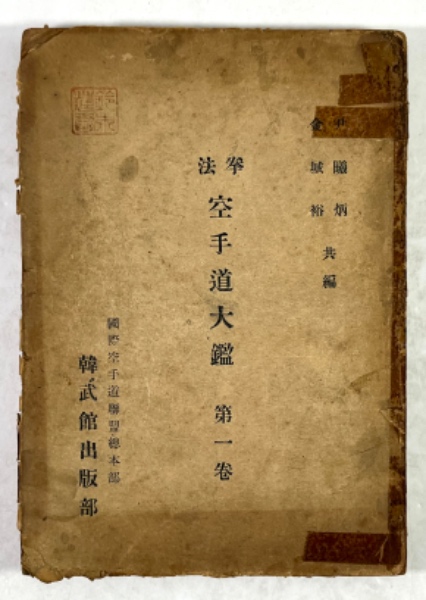 曦炳
金城裕
共編
拳法
空手道大鑑 第一卷
國際空手道聯盟總本部
韓武館出版部